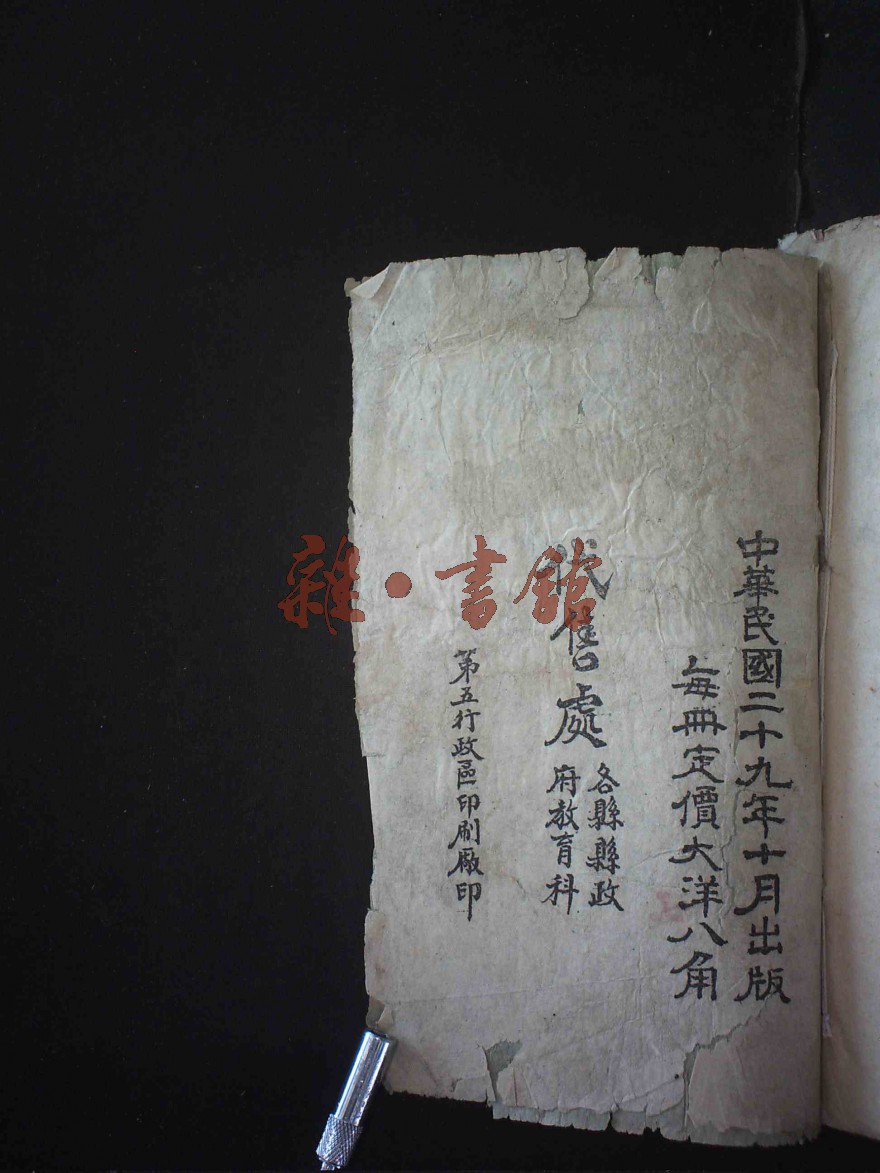 中華民國二十九年十月出版
每冊定價大洋八角
代售處
各縣縣政
府教育科
第五行政區印刷廠印
雜·書館